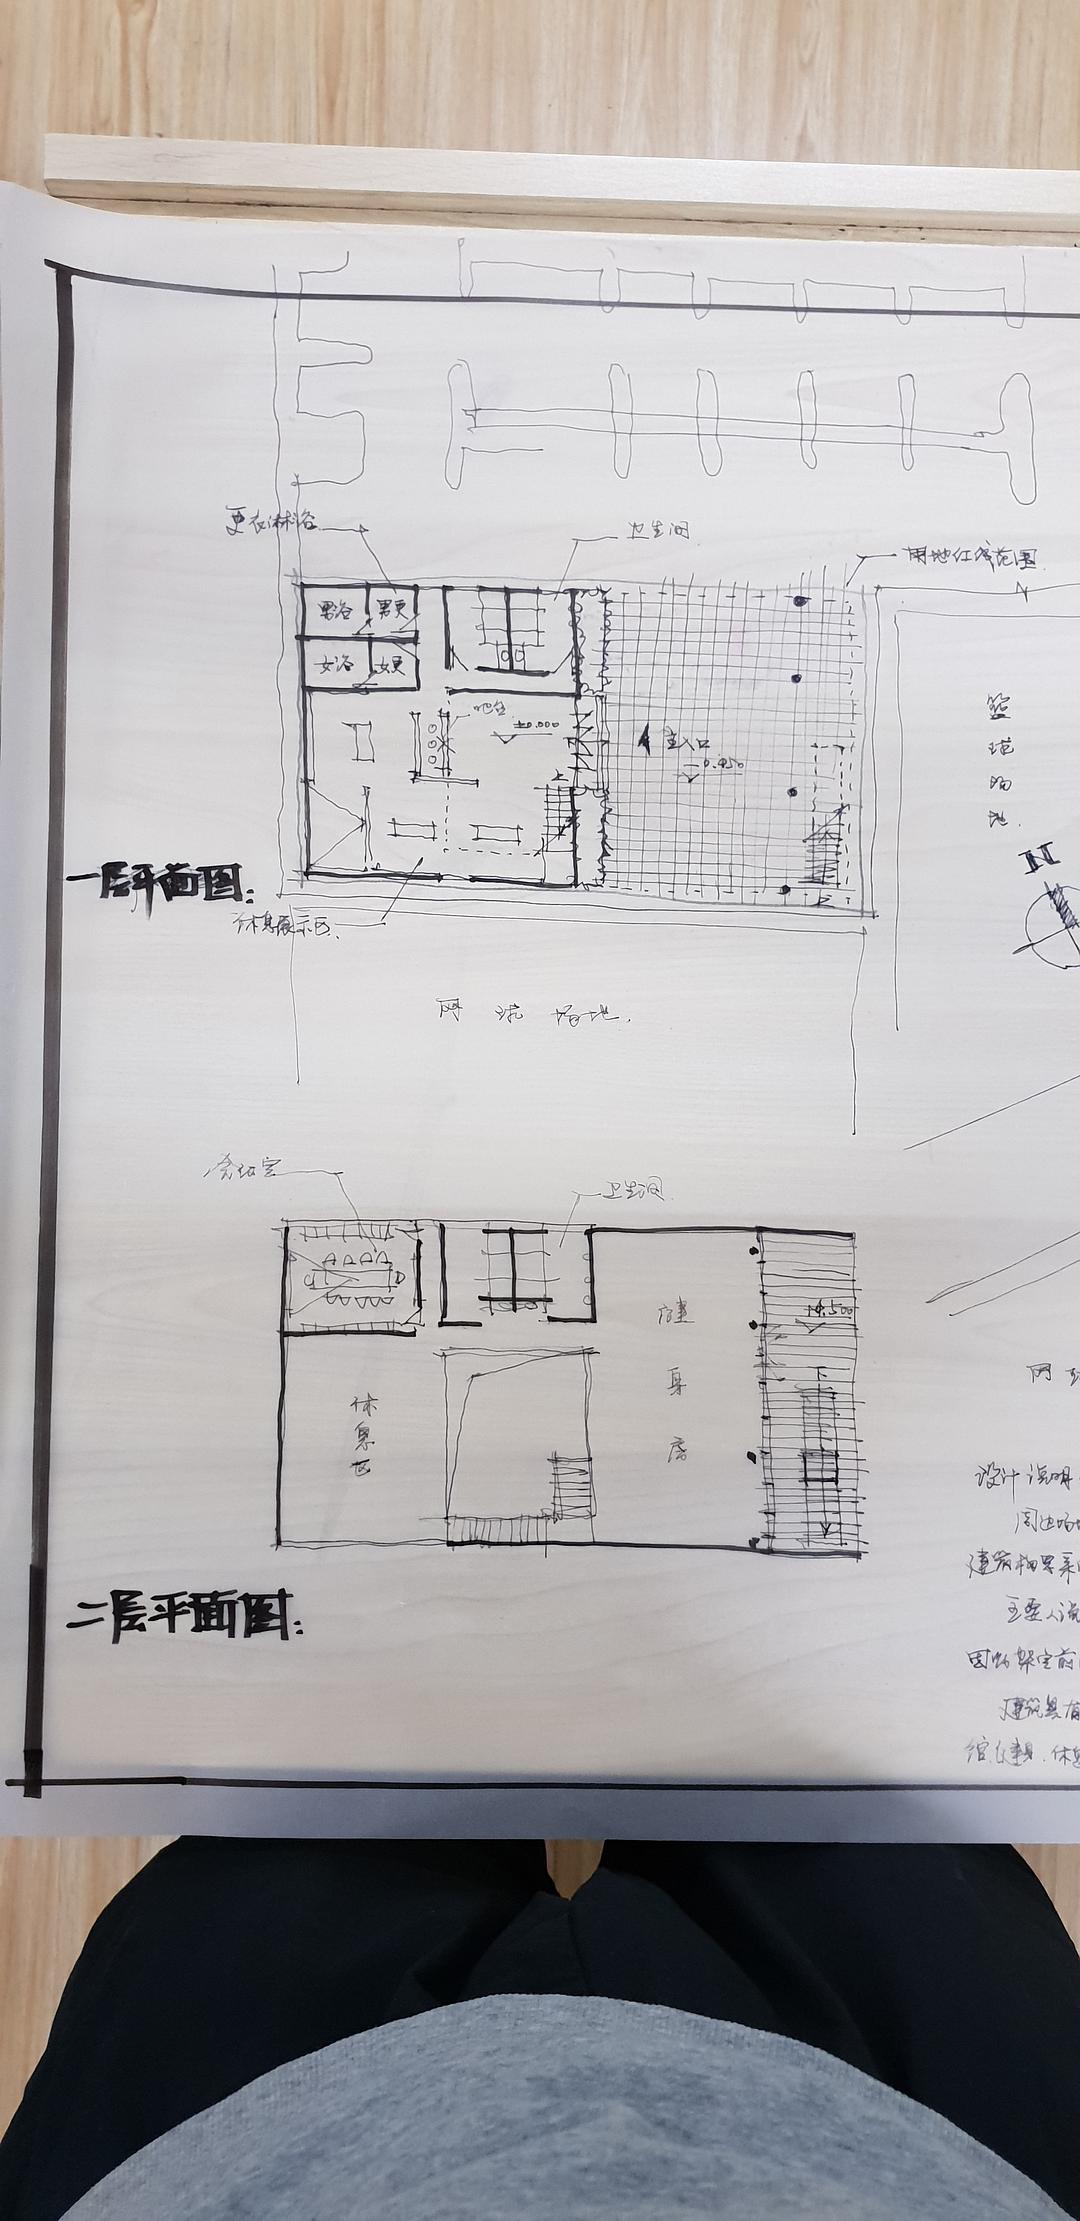 更衣淋浴
卫生间
用地红线范围
男浴 男更
女浴 女更
吧台
±0.000
主入口
-0.450
篮球场地.
N
一层平面图:
休息展示区.
网球场地.
会议室
卫生间
健身房
4.500
下
休息区
二层平面图:
网球
设计说明
周边场地
建筑
主要人流
因此架空前
建筑具有
休息